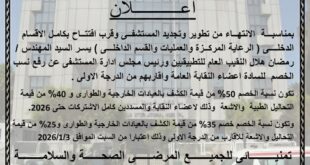 اعلان
بمناسبة الانتهاء من تطوير وتجديد المستشفى وقرب افتتاح بكامل الاقسام
الداخلى ( الرعاية المركزة والعمليات والقسم الداخلى ) يسر السيد المهندس /
رمضان هلال النقيب العام للتطبيقيين ورئيس مجلس ادارة المستشفى عن رفع نسب
الخصم للسادة اعضاء النقابة العامة واقاربهم من الدرجة الاولى .
وتكون نسبة الخصم 50% من قيمة الكشف بالعيادات الخارجية والطوارئ و 40% من قيمة
التحاليل الطبية والاشعة وذلك لاعضاء النقابة والمسددين كامل الاشتركات حتى 2026.
وتكون نسبة الخصم خصم 35% من قيمة الكشف بالعيادات الخارجية والطوارى و 25% من قيمة
التحاليل والاشعة للاقارب من الدرجة الاولى وذلك اعتبارا من السبت الموافق 2026/1/3
للجميع المرضى الصحة والسلامة